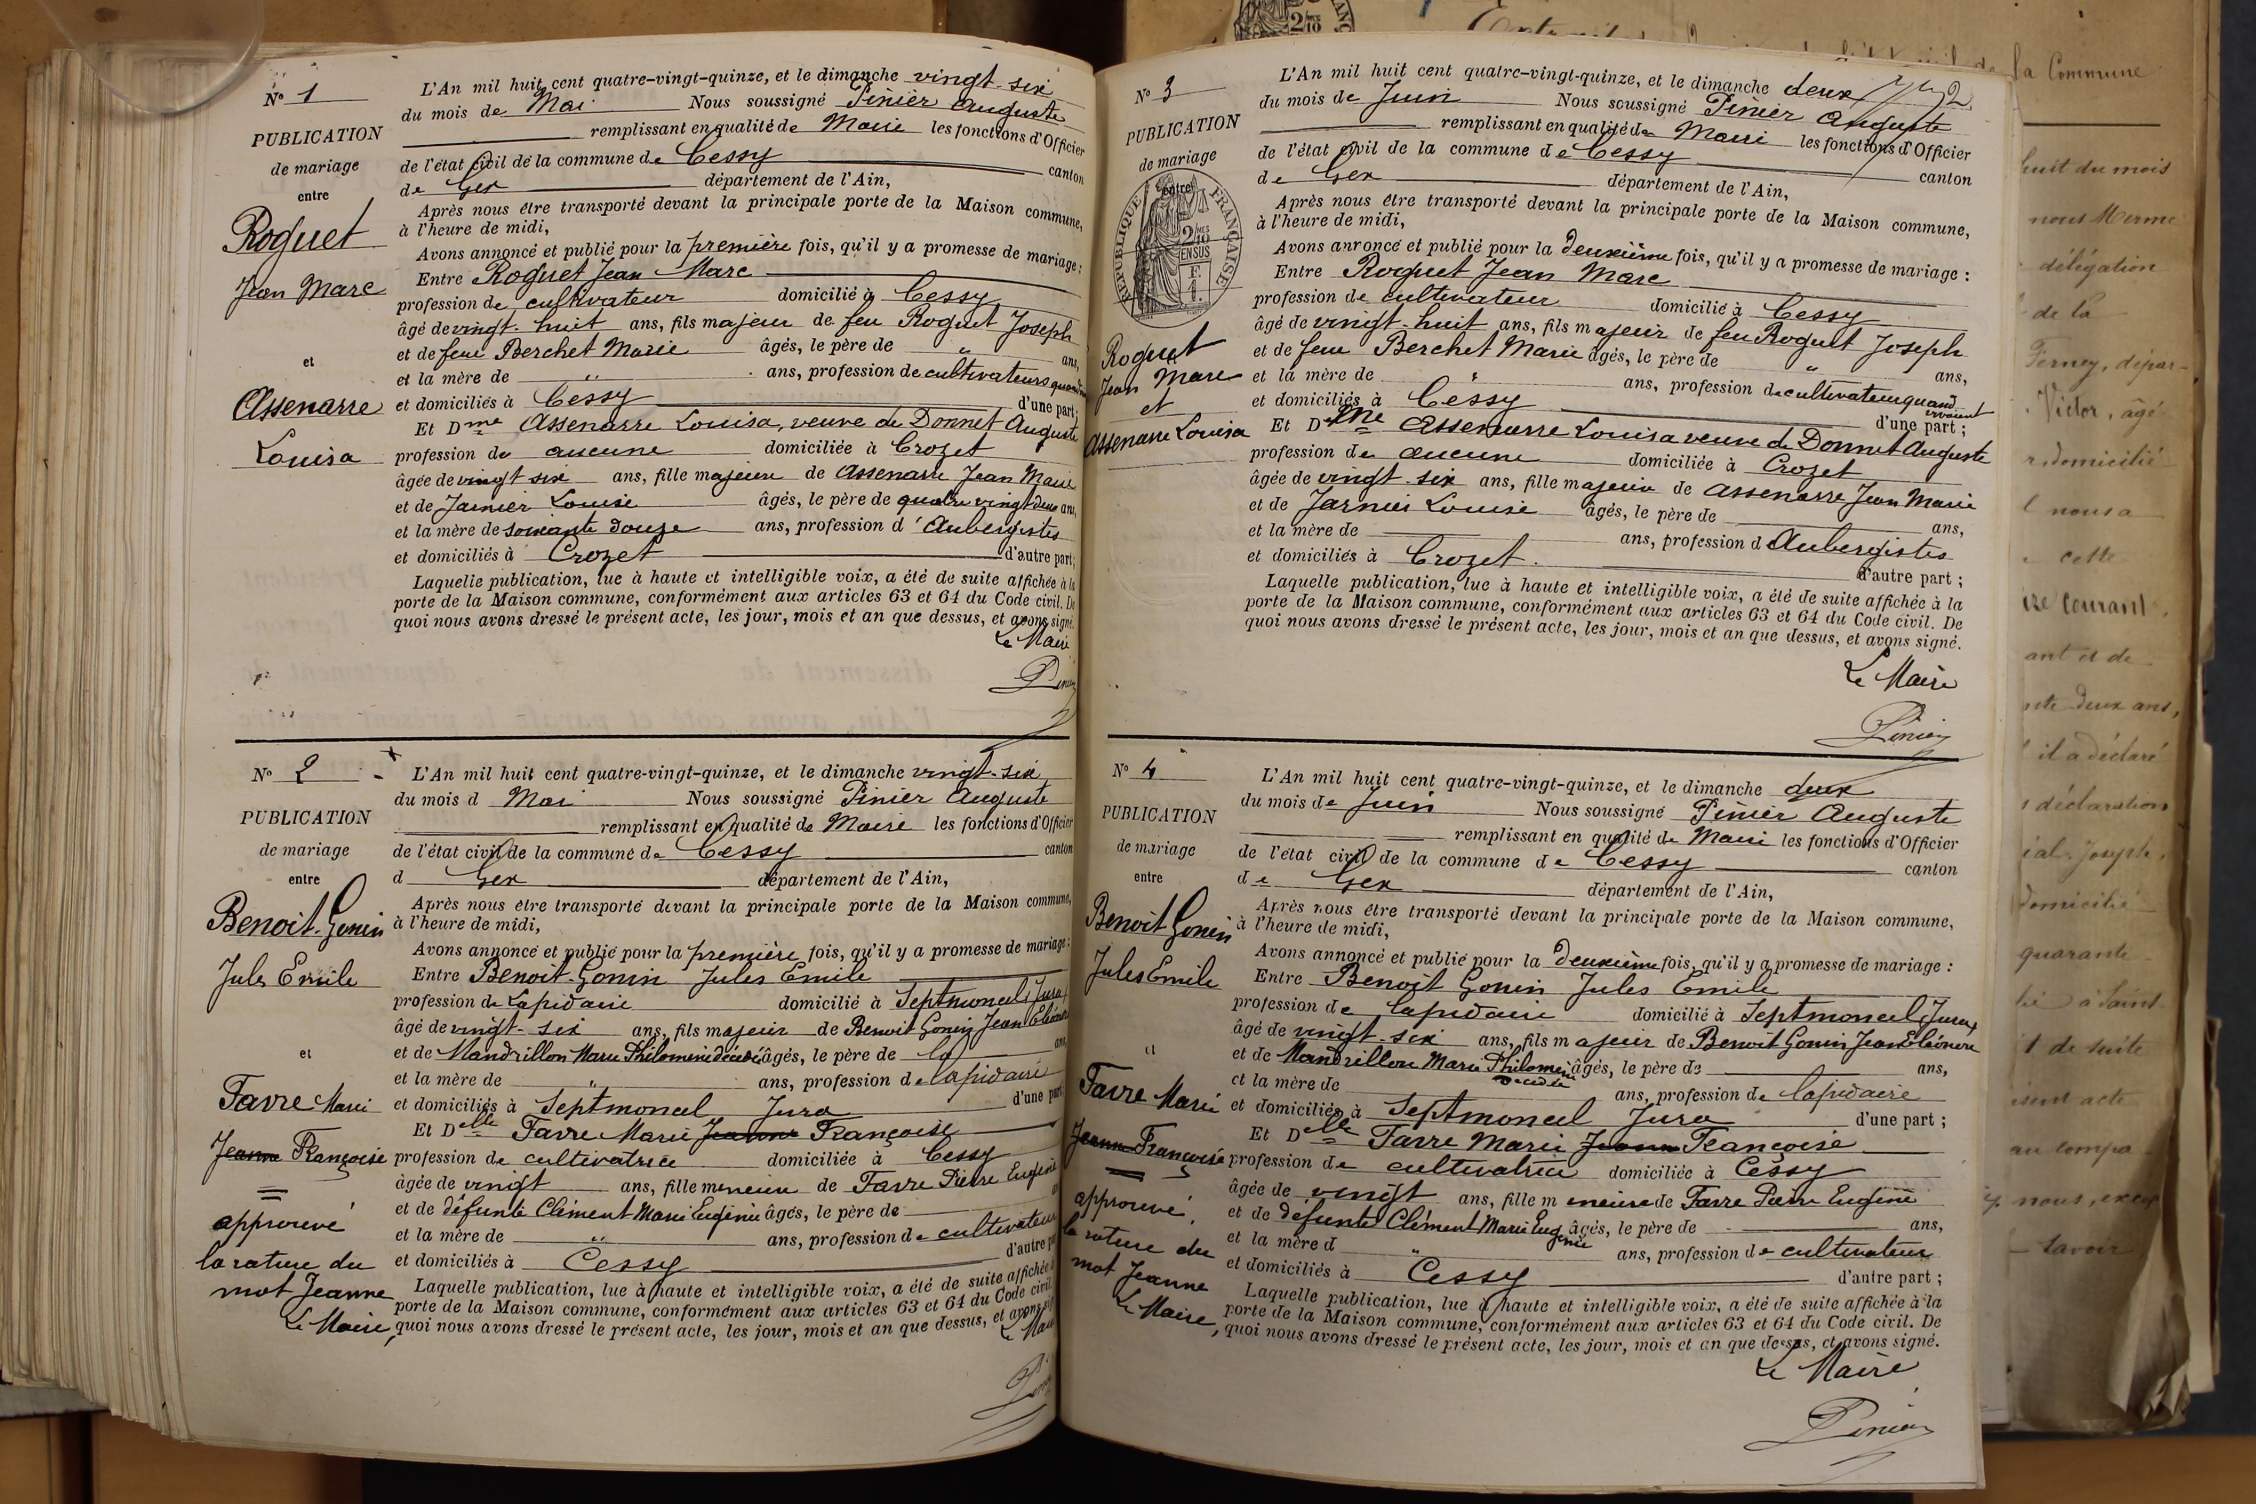 N° 1
PUBLICATION
de mariage
entre
Roguet
Jean Marc
et
Assenarre
Louisa
L'An mil huit cent quatre-vingt-quinze, et le dimanche vingt-six
du mois de Mai Nous soussigné Pinier Auguste
remplissant en qualité de Maire les fonctions d'Officier
de l'état civil de la commune de Cessy canton
de Gex département de l'Ain,
Après nous être transporté devant la principale porte de la Maison commune,
à l'heure de midi,
Avons annoncé et publié pour la première fois, qu'il y a promesse de mariage :
Entre Roguet Jean Marc
profession de cultivateur domicilié à Cessy
âgé de vingt-huit ans, fils majeur de feu Roguet Joseph
et de feue Berchet Marie âgés, le père de " ans,
et la mère de " ans, profession de cultivateurs quand
et domiciliés à Cessy d'une part;
Et Dme Assenarre Louisa, veuve de Donnet Auguste
profession de aucune domiciliée à Crozet
âgée de vingt six ans, fille majeure de Assenarre Jean Marie
et de Jarnier Louise âgés, le père de quatre vingt deux ans,
et la mère de soixante douze ans, profession d'Aubergistes
et domiciliés à Crozet d'autre part;
Laquelle publication, lue à haute et intelligible voix, a été de suite affichée à la
porte de la Maison commune, conformément aux articles 63 et 64 du Code civil. De
quoi nous avons dressé le présent acte, les jour, mois et an que dessus, et avons signé.
Le Maire
Pinier
N° 2
PUBLICATION
de mariage
entre
Benoit-Gonin
Jules Emile
et
Favre Marie
Jeanne Françoise
approuvé
la rature du
mot Jeanne
Le Maire,
L'An mil huit cent quatre-vingt-quinze, et le dimanche vingt-six
du mois d Mai Nous soussigné Pinier Auguste
remplissant en qualité de Maire les fonctions d'Officier
de l'état civil de la commune de Cessy canton
d Gex département de l'Ain,
Après nous être transporté devant la principale porte de la Maison commune,
à l'heure de midi,
Avons annoncé et publié pour la première fois, qu'il y a promesse de mariage :
Entre Benoit-Gonin Jules Emile
profession de Lapidaire domicilié à Septmoncel (Jura)
âgé de vingt-six ans, fils majeur de Benoit Gonin Jean Eléonore
et de Mandrillon Marie Philomène décédée âgés, le père de ans,
et la mère de " ans, profession de lapidaire
et domiciliés à Septmoncel Jura d'une part
Et Delle Favre Marie Jeanne Françoise
profession de cultivatrice domiciliée à Cessy
âgée de vingt ans, fille mineure de Favre Pierre Eugène
et de défunte Clément Marie Eugénie âgés, le père de
et la mère de " ans, profession de cultivateur
et domiciliés à Cessy d'autre part
Laquelle publication, lue à haute et intelligible voix, a été de suite affichée à
porte de la Maison commune, conformément aux articles 63 et 64 du Code civil
quoi nous avons dressé le présent acte, les jour, mois et an que dessus, et avons
Le Maire
N° 3
PUBLICATION
de mariage
entre
RÉPUBLIQUE FRANÇAISE
2/10 EN SUS
Roguet
Jean Marc
et
Assenarre Louisa
L'An mil huit cent quatre-vingt-quinze, et le dimanche deux
du mois de Juin Nous soussigné Pinier Auguste
remplissant en qualité de Maire les fonctions d'Officier
de l'état civil de la commune de Cessy canton
de Gex département de l'Ain,
Après nous être transporté devant la principale porte de la Maison commune,
à l'heure de midi,
Avons annoncé et publié pour la deuxième fois, qu'il y a promesse de mariage :
Entre Roguet Jean Marc
profession de cultivateur domicilié à Cessy
âgé de vingt-huit ans, fils majeur de feu Roguet Joseph
et de feue Berchet Marie âgés, le père de " ans,
et la mère de " ans, profession de cultivateur quand
vivaient
et domiciliés à Cessy d'une part ;
Et Dme Assenarre Louisa veuve de Donnet Auguste
profession de aucune domiciliée à Crozet
âgée de vingt-six ans, fille majeure de Assenarre Jean Marie
et de Jarnier Louise âgés, le père de ans,
et la mère de ans, profession d Aubergistes
et domiciliés à Crozet d'autre part ;
Laquelle publication, lue à haute et intelligible voix, a été de suite affichée à la
porte de la Maison commune, conformément aux articles 63 et 64 du Code civil. De
quoi nous avons dressé le présent acte, les jour, mois et an que dessus, et avons signé.
Le Maire
Pinier
N° 4
PUBLICATION
de mariage
entre
Benoit Gonin
Jules Emile
et
Favre Marie
Jeanne Françoise
approuvé
la rature du
mot Jeanne
Le Maire,
L'An mil huit cent quatre-vingt-quinze, et le dimanche deux
du mois de Juin Nous soussigné Pinier Auguste
remplissant en qualité de Maire les fonctions d'Officier
de l'état civil de la commune de Cessy canton
de Gex département de l'Ain,
Après nous être transporté devant la principale porte de la Maison commune,
à l'heure de midi,
Avons annoncé et publié pour la deuxième fois, qu'il y a promesse de mariage :
Entre Benoit Gonin Jules Emile
profession de lapidaire domicilié à Septmoncel (Jura)
âgé de vingt-six ans, fils majeur de Benoit Gonin Jean Eléonore
et de Mandrillon Marie Philomène décédée âgés, le père de ans,
et la mère de ans, profession de lapidaire
et domiciliés à Septmoncel Jura d'une part ;
Et Delle Favre Marie Jeanne Françoise
profession de cultivatrice domiciliée à Cessy
âgée de vingt ans, fille mineure de Favre Pierre Eugène
et de défunte Clément Marie Eugénie âgés, le père de ans,
et la mère d " ans, profession de cultivateur
et domiciliés à Cessy d'autre part ;
Laquelle publication, lue à haute et intelligible voix, a été de suite affichée à la
porte de la Maison commune, conformément aux articles 63 et 64 du Code civil. De
quoi nous avons dressé le présent acte, les jour, mois et an que dessus, et avons signé.
Le Maire
Pinier
la Commune
huit du mois
nous
délégation
de la
Ferney, dépar-
Victor, âgé
domicilié
nous a
cette
courant,
ant et de
deux ans,
il a déclaré
déclaration
Joseph,
domicilié
quarante
à Saint
de suite
acte
nous,
savoir